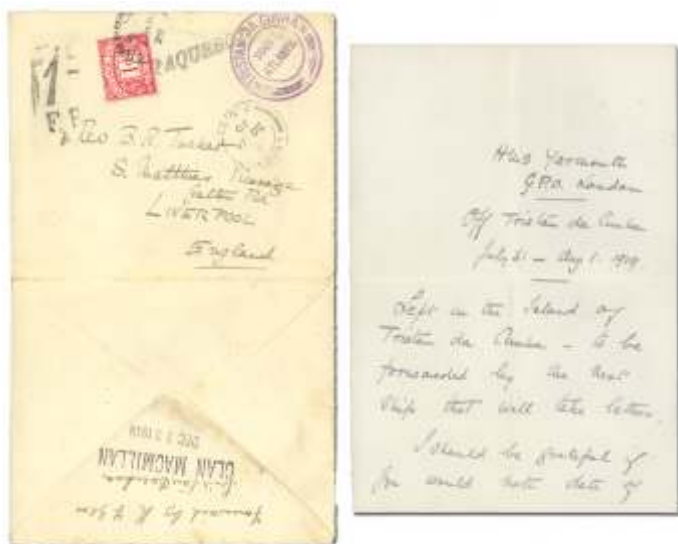 1
PAQUEB
TRISTAN-DA-CUNHA
SOUTH
ATLANTIC
LIVERPOOL
England
DEC 1919
CLAN MACMILLAN
Forward by
HMS Yarmouth
G.P.O. London
Off Tristan da Cunha
July 31 - Aug 1. 1919.
Left in the Island of
Tristan da Cunha - to be
forwarded by the next
ship that will take letters.
I should be grateful if
you would note date of